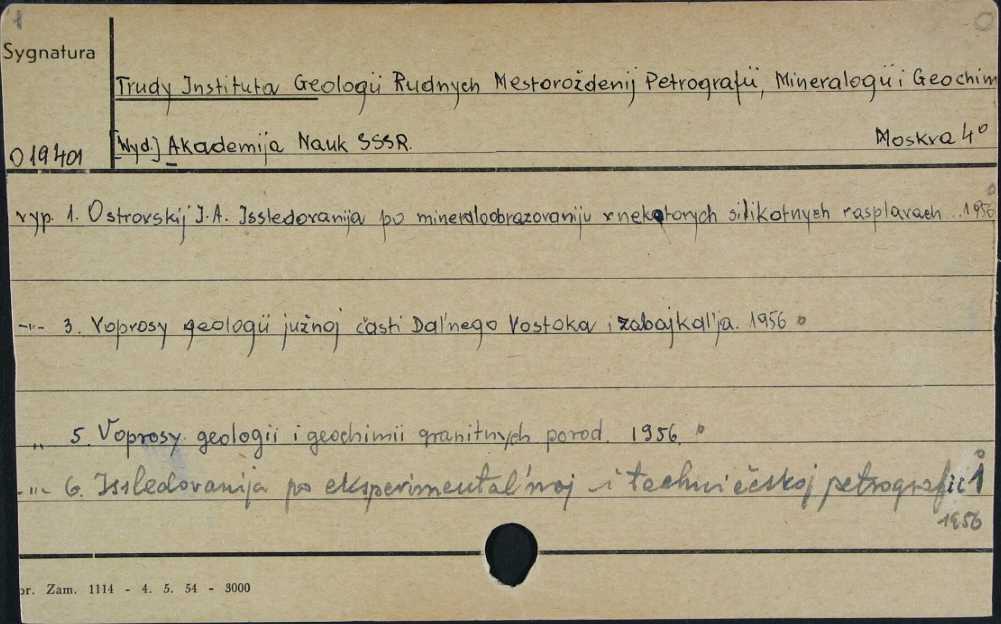 1
Sygnatura
Trudy Instituta Geologii Rudnych Mestoroždenij Petrografii, Mineralogii i Geochim
019401 [Wyd.] Akademija Nauk SSSR. Moskva 4°
vyp. 1. Ostrovskij I.A. Issledovanija po mineraloobrazovaniju v nekotorych silikatnych rasplavach .. 1956
-"- 3. Voprosy geologii južnoj časti Dal'nego Vostoka i zabajkal'ja. 1956
„ 5. Voprosy geologii i geochimii granitnych porod. 1956.
-"- 6. Issledovanija po eksperimental'noj i techničeskoj petrografii
1956
or. Zam. 1114 - 4. 5. 54 - 3000